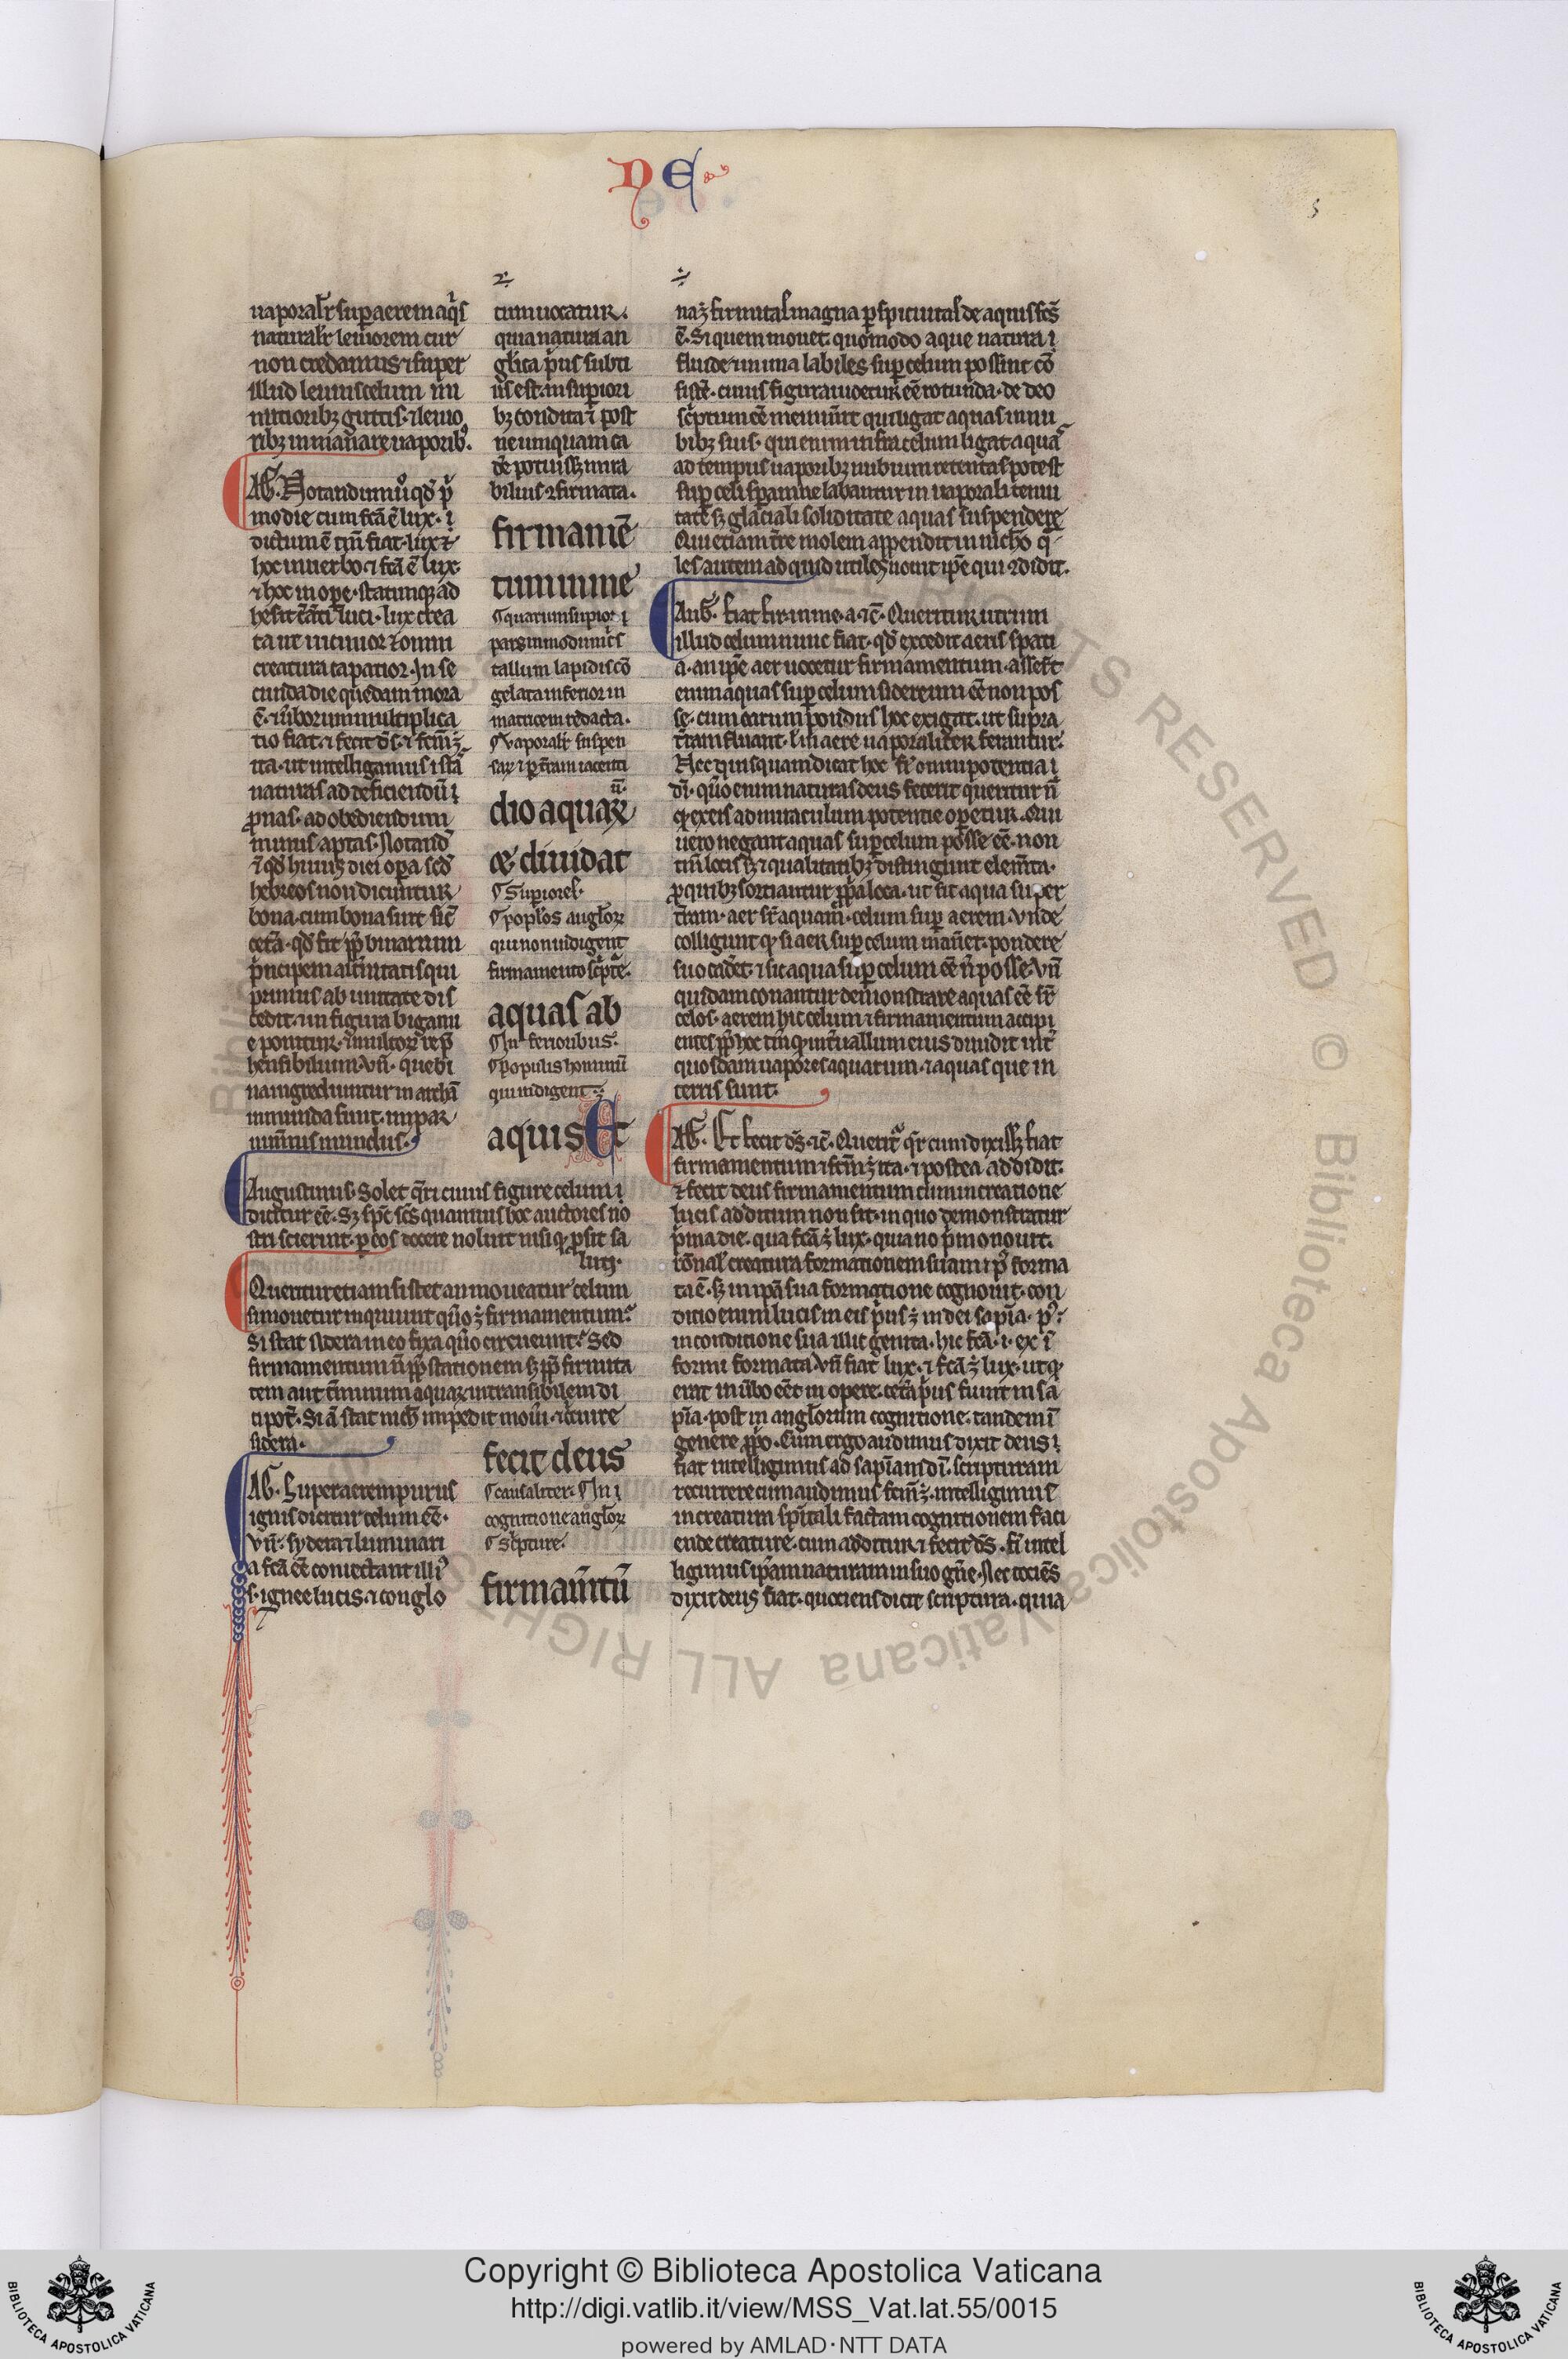 NE
5
uaporalr̄ sup aerem aq̄s
naturalr̄ leuiorem cur
non credamus ⁊ super
illud leuius celum mi
nutioribꝫ guttis ⁊ leuio
ribꝫ inmanare uaporibꝰ.
AG. Notandum u͛o qd̓ p̓
mo die cum fcā ē lux. i
dictum ē tm̄ fiat lux ⁊
hoc in uerbo ⁊ fcā ē lux
⁊ hoc in ope. statimqꝫ ad
luci. lux crea
creatura capatior. In se
cunda die quedam mora
ē. ⁊ u͛borum multiplica
tio fiat. ⁊ fecit dS̄. ⁊
ita. ut intelligamus istā
naturas ad deficiendū
pronas. ad obediendum
minus aptas. Notand̄
ē qd̓ huiꝰ diei opa sed̓
hebreos non dicuntur
bona. cum bona sint sic̄
cet̄a. qd̓ fit binarium
p̓ncipem alt̓nitatis qui
primus ab unitate dis
cedit. ⁊ in figura bigami
e ponitur.
hensibilium. Vn̄. que bi
na ingrediuntur in archā
inmunda sunt. inpar
mundus.
Augustinus. Solet q̄ri cuius figure celum
dicatur eē. Sꝫ spc̄ scs̄ quamuis hoc auctores no
stri scierint. p eos docere noluit nisi qꝫ p̱sit sa
luti.
Queritur etiam si stet an moueatur celum
si mouetur inquiunt quō ē firmamentum?
Si stat sidera in eo fixa quō circueunt? Sed
firmamentum n̄ ꝓp̄ stationem sꝫ ꝓp̄ firmita
tem aut t̓minum aquaꝝ intransibilem di
ci pot̄. Si ā stat nich̄ impedit moū̄i ⁊ circuire
sidera.
AG. Super aerem purus
ignis dicitur celum eē.
Vn̄. sydera ⁊ luminari
a fcā eē coniectant illiꝰ
s. ignee lucis. ⁊ conglo
tum uocatur.
quia natura an
gl̄ica p̓us subti
lis est. in supiori
bꝫ condita ⁊ post
ne umquam ca
de potuissꝫ mira
bilius ⁊firmata.
firmamē
tum in me
quarum supior
pars in modum
tallum lapidis cō
gelata inferior in
maticem redacta.
Vaporalr̄ suspen
saꝝ ⁊ p t̓ram iacenti
ū
dio aquaꝝ
⁊ diuidat
Superiores.
Poplos angl̄oꝝ
qui non indigent
firmamento sc̓pte.
aquas ab
Inferioribus.
Populis hominū
qui indigent.
aquis Et
fecit deus
causaliter. In
cognitione angl̄oꝝ
Sc̓pture.
firmam̄tū
naꝫ firmitas magna pspicuitas de aquis fcs̄
ē. Si quem mouet. quomodo aque natura
fluide ⁊ in ima labiles sup celum possint cō
sistē. cuius figura uidetur eē rotunda. de deo
sc̓ptum eē memin̄it qui ligat aquas in nu
bibꝫ suis. qui enim infra celum ligat aquā
ad tempus uaporibꝫ nubium retentas potest
sup celi speram ne labantur in uaporali tenui
tate sꝫ glaciali soliditate aquas suspendere
Qui etiam t̓re molem appendit in nich̄o q̄
les autem ad quid utiles nouit ipe qui ⁊didit.
Aug̓. fiat fir. in me. a. ⁊c̄. Queritur utrum
illud celum nunc fiat. qd̓ excedit aeris spati
a. an ipe aer uocetur firmamentum. asser̄t
enim aquas sup celum sidereum eē non pos
se. cum earum pondus hoc exigat. ut supra
t̓ram fluant. l̓ in aere uaporaliter ferantur.
Nec quisquam dicat hoc omnipotentia
dī. quō enim naturas deus fecerit queritur n̄
ꝙ ex eis ad miraculum potentie opetur. Qui
uero negant aquas sup celum posse eē. non
tm̄ locis sꝫ ⁊ qualitatibꝫ distingunt elem̄ta.
ꝓ quibꝫ sortiantur ꝓp̓a loca. ut sit aqua super
t̓ram. aer sr̄ aquam. celum sup aerem. Vnde
colligunt ꝙ si aer sup celum man̄et. pondere
suo cad̓et. ⁊ sic aqua sup celum eē n̄ posse. Vn̄
quidam conantur demonstrare aquas eē sr̄
celos. aerem hic celum ⁊ firmamentum accipi
entes ꝓp̄ hoc tm̄ ꝙ int̓uallum eius diuidit int̓
quosdam uapores aquarum. ⁊ aquas que in
terris sunt.
AG. Et fecit dS̄. ⁊c̄. Querit̓ q̄r cum dixissꝫ fiat
firmamentum ⁊ ita. ⁊ postea addidit.
⁊ fecit deus firmamentum cum in creatione
lucis additum non sit. in quo demonstratur
p̓ma die. qua fcā ꝫ lux. quia no p̓mo nouit.
rōnal creatura formationem suam ⁊ pꝰ forma
ta ē. sꝫ in ipā sua formatione cognouit. con
ditio enim lucis in eis p̓us ꝫ in dei sapīa. pꝰ.
in conditione sua illic genita. hic fcā. i. ex ī
formi formata. Vn̄ fiat lux. ⁊ fcā ꝫ lux. ut ꝙ
erat in u͛bo eēt in opere. cet̄a p̓us fiunt in sa
pīa. post in angl̄orum cognitione. tandem ī
genere ꝓp̓o. Cum ergo audimus dixit deus
fiat intelligimus ad sapīam dī. scripturam
recurrere cum audimus intelligimus
in creatum sp̄itali factam cognitionem faci
ende creature. cum additur ⁊ fecit dS̄. intel
ligimus ipam naturam in suo gn̄e. Nec tociēs
dixit deus fiat. quociens dicit scriptura. quia
Copyright © Biblioteca Apostolica Vaticana
http://digi.vatlib.it/view/MSS_Vat.lat.55/0015
powered by AMLAD·NTT DATA
BIBLIOTECA APOSTOLICA VATICANA
BIBLIOTECA APOSTOLICA VATICANA
Biblioteca Apostolica Vaticana ALL RIGHTS RESERVED ©